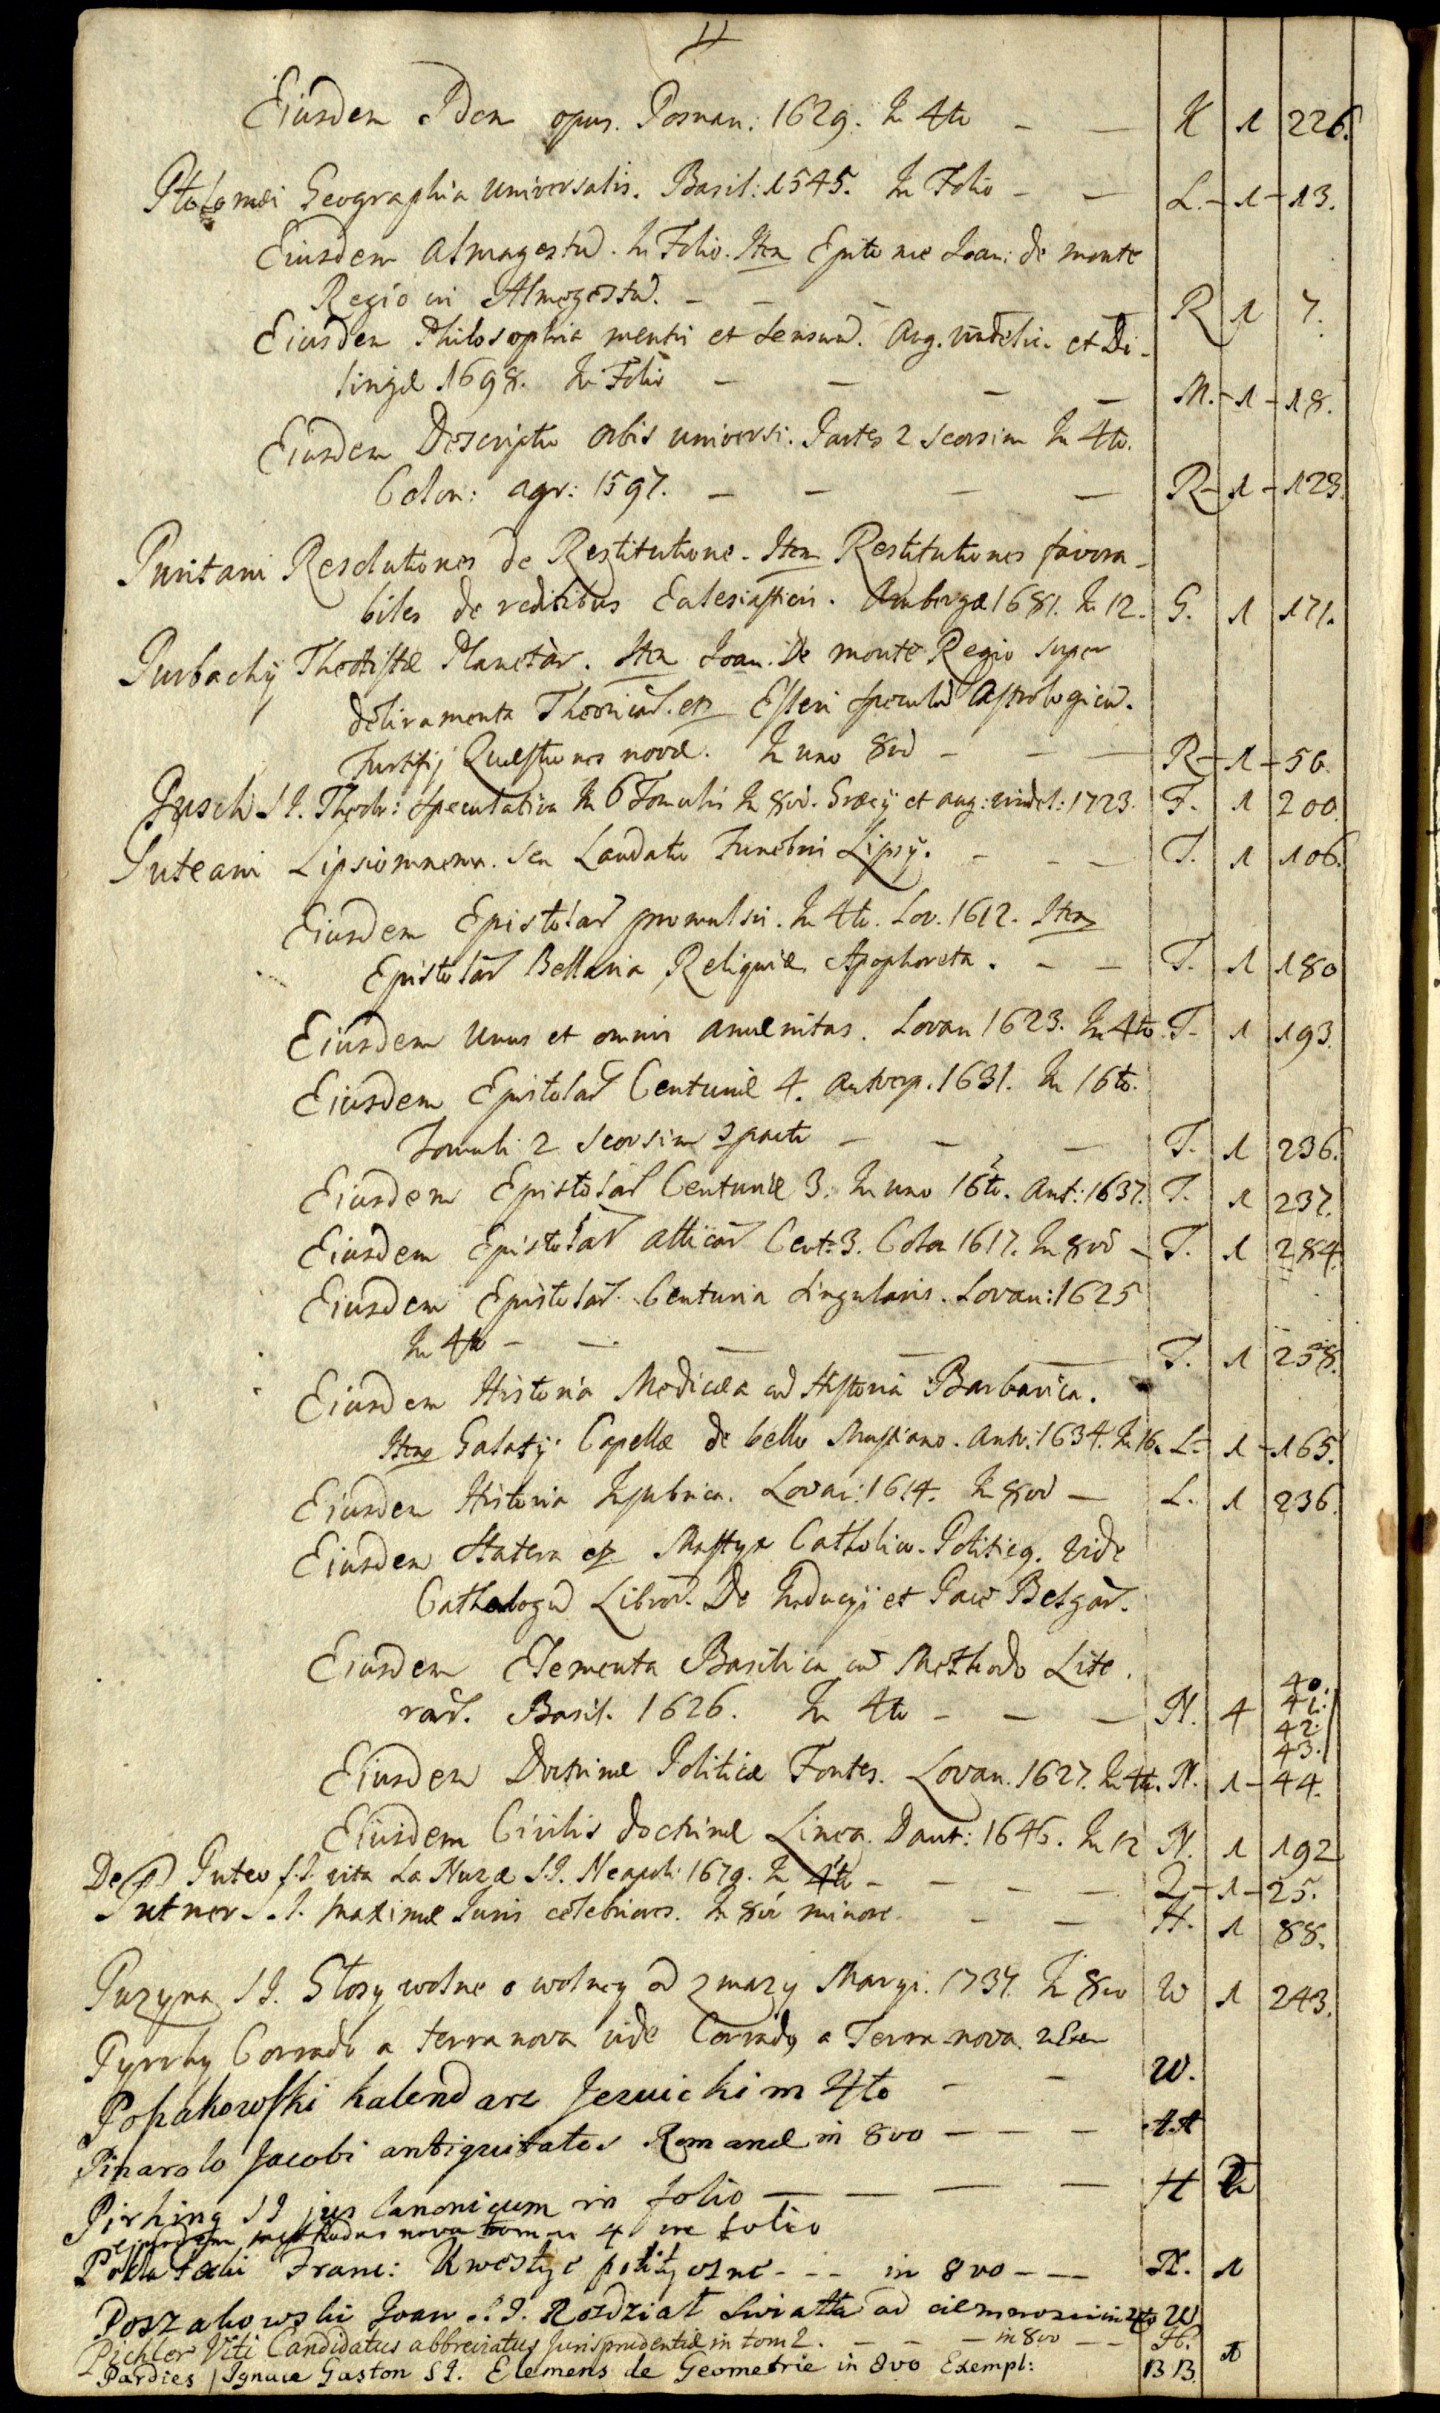 Eiusdem Idem opus. Posnan: 1629. In 4to — — K 1 226.
Ptolomæi Geographia universalis. Basil: 1545. In Folio — — L. – 1 – 13.
Eiusdem Almagestū. In Folio. Item Epitome Joan: de monte
Regio in Almagestū. — — — R 1 7.
Eiusdem Philosophia mentis et sensuū. Aug. vindelic. et Di-
lingæ 1698. In Folio — — — — M. – 1 – 18.
Eiusdem Descriptio orbis universi. Partes 2 seorsim In 4to.
Colon: agr: 1597. — — — — R – 1 – 123.
Puritani Resolutiones de Restitutione. Item Restitutiones favora-
biles de reditibus Eclesiasticis. Ambergæ 1681. In 12. G. 1 171.
Purbachij Planetar. Item Joan. De monte Regio super
deliramenta Theoricar. et Esleri speculū Astrologicū.
Quæstiones novæ. In uno 8vo — — — R – 1 – 56.
Pusch S.I. Theolo: speculativa In 6 Tomulis In 8vo. Græcij et aug: vindel: 1723. T. 1 200.
Puteani Lipsiomnema. seu Laudatio Funebris Lipsij. — — — T. 1 106.
Eiusdem Epistolar promulsis. In 4to. Lov. 1612. Item
Epistolar Bellaria, Reliquiæ, Apophoreta. — — T. 1 180
Eiusdem Unus et omnis amænitas. Lovan 1623. In 4to. T. 1 193.
Eiusdem Epistolar Centuriæ 4. Antverp. 1631. In 16to.
Tomuli 2 seorsim — — — T. 1 236.
Eiusdem Epistolar Centuriæ 3. In uno 16to. Ant: 1637. T. 1 237.
Eiusdem Epistolar atticar Cent: 3. Colon 1617. In 8vo — T. 1 284.
Eiusdem Epistolar. Centuria singularis. Lovan: 1625
In 4to — — — — — T. 1 258.
Eiusdem Historia Medicæa ad Historiā Barbarica.
Item Galatij Capellæ de bello Mussiano. Antv: 1634. In 16. L. – 1 – 165.
Eiusdem Historia Insubrica. Lovan: 1614. In 8vo — L. 1 236.
Eiusdem Statera et Mastyx Catholico-Politicq. vide
Cathalogū Libror. De Inducijs et Pace Belgar.
Eiusdem Elementa Basilica ad Methodo Lite
rar. Basil. 1626. In 4to — — — N. 4 40. 41. 42. 43.
Eiusdem Doctrinæ Politicæ Fontes. Lovan. 1627. In 4to. N. 1 – 44.
Eiusdem Civilis doctrinæ Linea. Dant: 1646. In 12 N. 1 192
De Puteo S.I. vita La Nuzæ S.I. Neapoli 1679. In 4to — — — — Q – 1 – 25.
Putner S.I. Maximæ Juris celebriores. In 8vo minore — — H. 1 88.
Puzyna S.I. Głosy wolne o wolney od zmazy Maryi. 1737. In 8vo W 1 243.
Pyrrhy Corrado a terra nova vide Corrady a Terra nova.
Poszakowski kalendarz Jezuicki in 4to — — W.
Pinarolo Jacobi antiquitates Romanæ in 8vo — — — AA
Pirhing S I jus Canonicum in folio — — — — H
ejusdem methodus nova tomus 4 in folio
Potockii Franc: Kwestye polityczne - - - in 8vo — — N. 1
Poszakowski Joan S.I. Rozdział Swiatła od ciemnosci in 4to W
Pichler Viti Candidatus abbreviatus Jurisprudentiæ in tom 2. — — — in 8vo — — H. 1
Pardies / Ignace Gaston S I. Elemens de Geometrie in 8vo Exempl: BB.